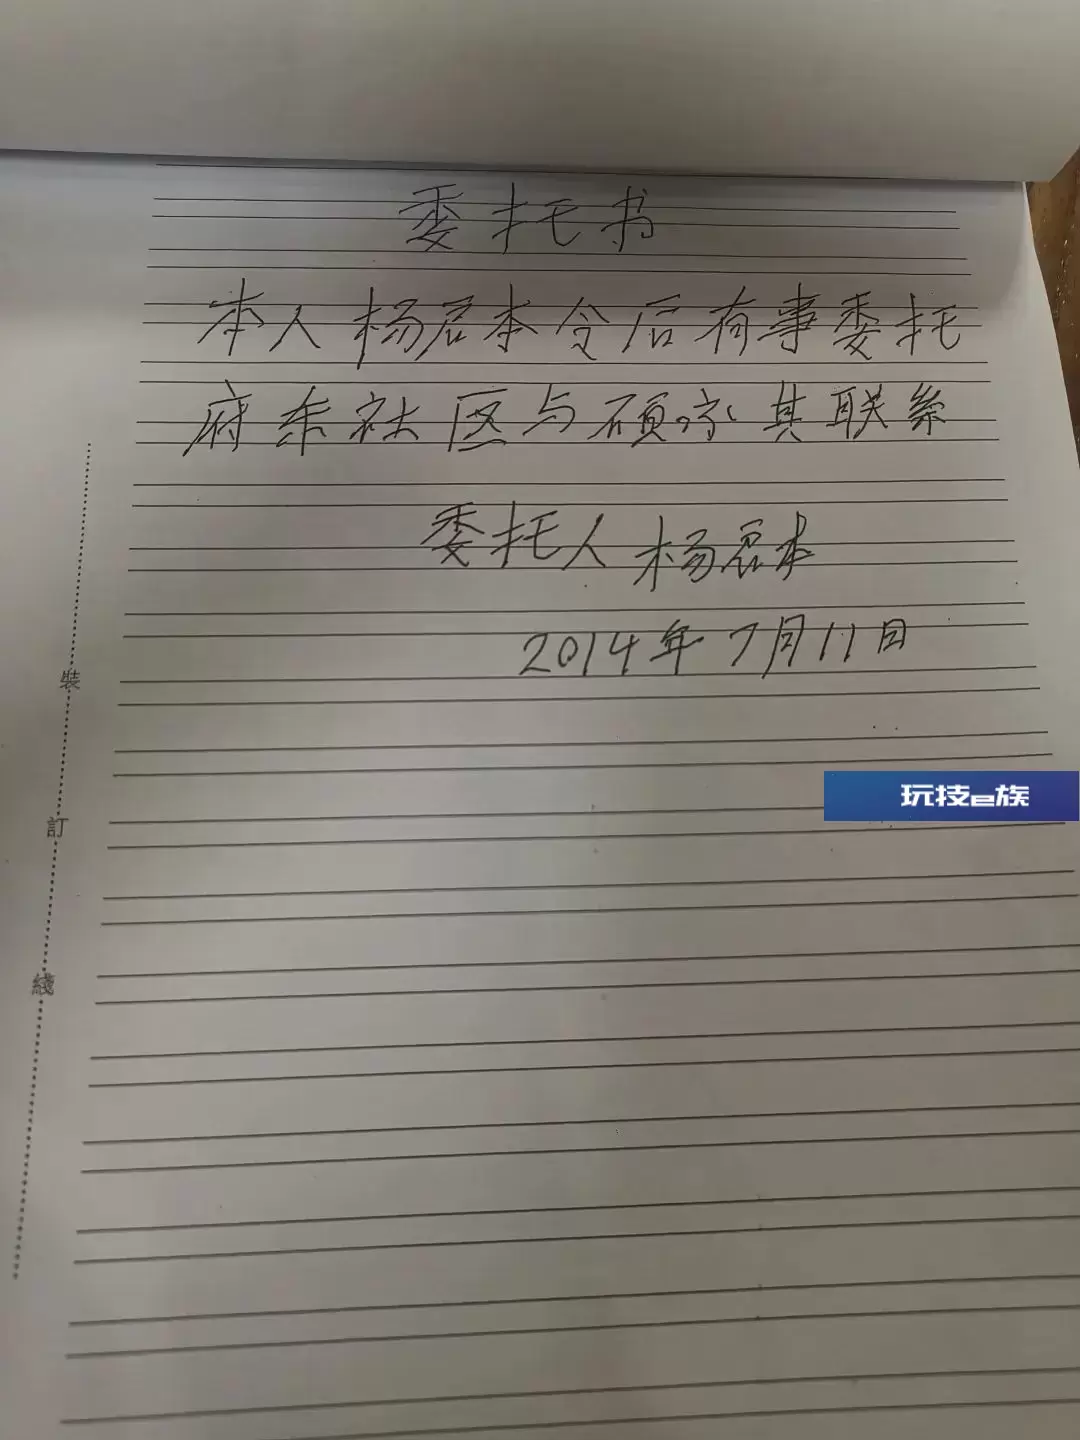 委托书
本人杨君本令后有事委托
府东社区与硕咏其联系
委托人杨君本
2014年7月11日
装
訂
綫
玩技e族